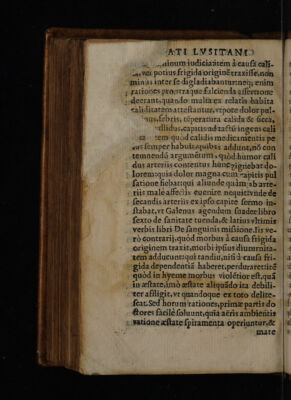 ATI LVSITANI
minum iudicia: item à causa cali-
potius frigida originẽ traxisse, non
minus inter se digladiabantur, neq; enim
rationes pro vtraque falcienda assertione
deerant, quando multa ex relatis habita
caliditatem attestantur, vt pote dolor pul-
febris, tẽperatura calida & sicca,
pallidus, capitis ad tactũ ingens cali
tem quod calidis medicamentis pe
us semper habuit, quibus addunt, nõ con
temnendũ argumẽtum, quòd humor cali
dus arteriis contentus hunc gignebat do-
lorem: quia dolor magna cum capitis pul
satione fiebat: qui aliunde quàm ab arte-
riis malè affectis euenire nequit: vnde de
secandis arteriis ex ipso capite sermo in-
stabat, vt Galenus agendum suadet libro
sexto de sanitate tuenda, & latius vltimis
verbis libri De sanguinis missione. Iis ve-
rò contrarij, quòd morbus à causa frigida
originem traxit, morbi ipsius diuturnita-
tem adducunt: qui tandiu, nisi à causa fri-
gida dependentiã haberet, perdurare tierẽ
quòd in hyeme morbus violẽtior est, quã
in æstate, imò æstate aliquãdo ita debili-
ter affligit, vt quandoque ex toto delite-
scat. Sed horum rationes, primæ partis do
ctores facilè soluunt, quia aëris ambientis
ratione æstate spiramenta operiuntur, &
mate